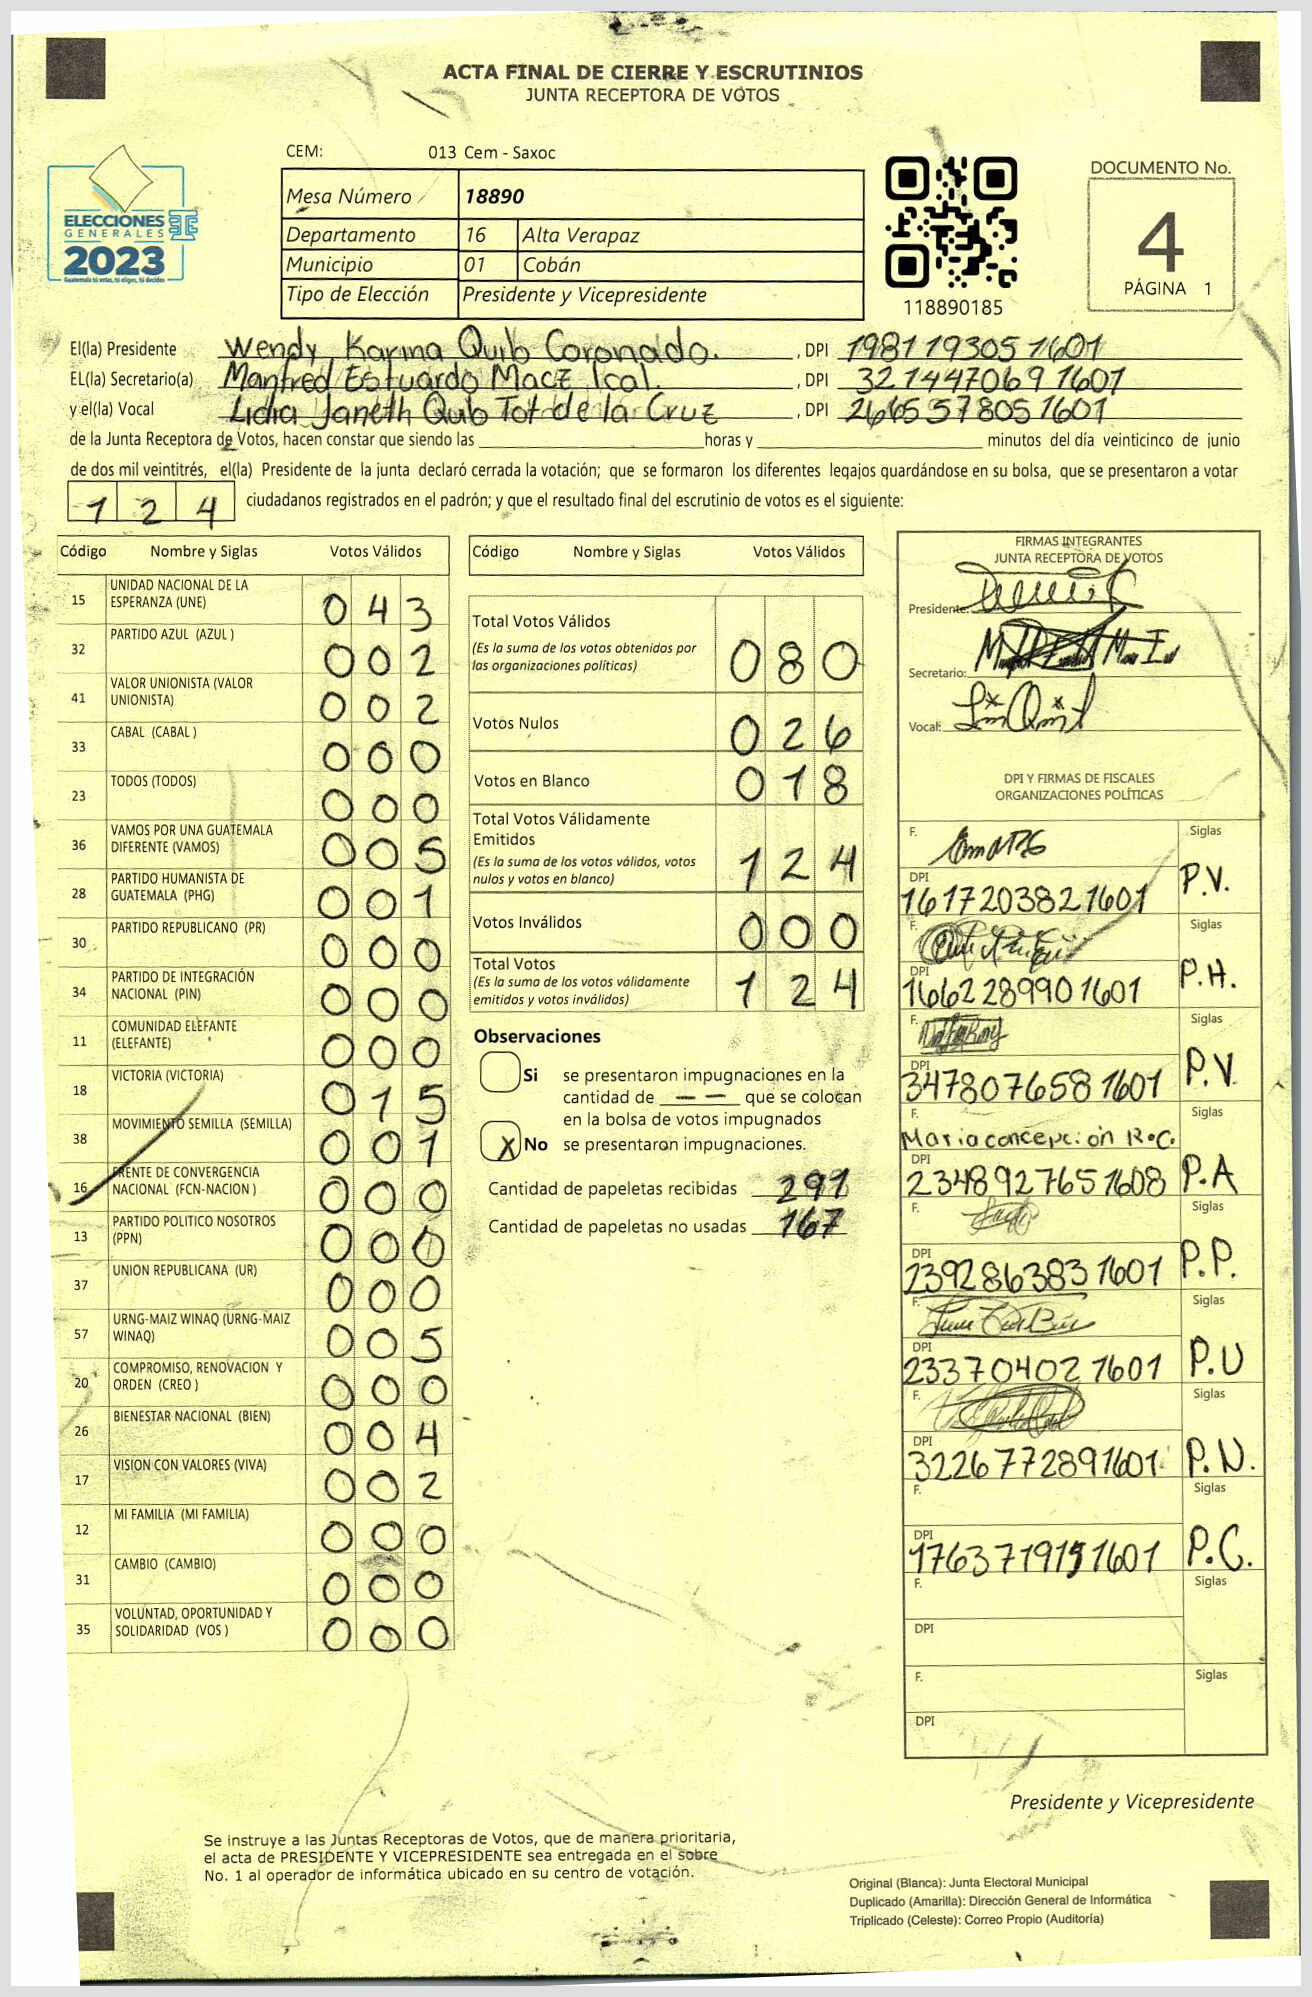 ACTA FINAL DE CIERRE Y ESCRUTINIOS
JUNTA RECEPTORA DE VOTOS
CEM: 013 Cem - Saxoc
ELECCIONES
GENERALES
2023
Guatemala tú votas, tú eliges, tú decides
Mesa Número 18890
Departamento 16 Alta Verapaz
Municipio 01 Cobán
Tipo de Elección Presidente y Vicepresidente
118890185
DOCUMENTO No.
4
PÁGINA 1
El(la) Presidente Wendy Karina Quib Coronado. , DPI 1981193051601
EL(la) Secretario(a) Manfred Estuardo Macz Ical. , DPI 3214470691601
y el(la) Vocal Lidia Janeth Quib Tot de la Cruz , DPI 2665578051601
de la Junta Receptora de Votos, hacen constar que siendo las horas y minutos del día veinticinco de junio
de dos mil veintitrés, el(la) Presidente de la junta declaró cerrada la votación; que se formaron los diferentes legajos guardándose en su bolsa, que se presentaron a votar
124 ciudadanos registrados en el padrón; y que el resultado final del escrutinio de votos es el siguiente:
Código Nombre y Siglas Votos Válidos
15 UNIDAD NACIONAL DE LA ESPERANZA (UNE) 043
32 PARTIDO AZUL (AZUL ) 002
41 VALOR UNIONISTA (VALOR UNIONISTA) 002
33 CABAL (CABAL ) 000
23 TODOS (TODOS) 000
36 VAMOS POR UNA GUATEMALA DIFERENTE (VAMOS) 005
28 PARTIDO HUMANISTA DE GUATEMALA (PHG) 001
30 PARTIDO REPUBLICANO (PR) 000
34 PARTIDO DE INTEGRACIÓN NACIONAL (PIN) 000
11 COMUNIDAD ELEFANTE (ELEFANTE) 000
18 VICTORIA (VICTORIA) 015
38 MOVIMIENTO SEMILLA (SEMILLA) 001
16 FRENTE DE CONVERGENCIA NACIONAL (FCN-NACION ) 000
13 PARTIDO POLITICO NOSOTROS (PPN) 000
37 UNION REPUBLICANA (UR) 000
57 URNG-MAIZ WINAQ (URNG-MAIZ WINAQ) 005
20 COMPROMISO, RENOVACION Y ORDEN (CREO ) 000
26 BIENESTAR NACIONAL (BIEN) 004
17 VISION CON VALORES (VIVA) 002
12 MI FAMILIA (MI FAMILIA) 000
31 CAMBIO (CAMBIO) 000
35 VOLUNTAD, OPORTUNIDAD Y SOLIDARIDAD (VOS ) 000
Código Nombre y Siglas Votos Válidos
Total Votos Válidos 080
(Es la suma de los votos obtenidos por
las organizaciones políticas)
Votos Nulos 026
Votos en Blanco 018
Total Votos Válidamente
Emitidos 124
(Es la suma de los votos válidos, votos
nulos y votos en blanco)
Votos Inválidos 000
Total Votos 124
(Es la suma de los votos válidamente
emitidos y votos inválidos)
Observaciones
Si se presentaron impugnaciones en la
cantidad de — — que se colocan
en la bolsa de votos impugnados
X No se presentaron impugnaciones.
Cantidad de papeletas recibidas 291
Cantidad de papeletas no usadas 167
FIRMAS INTEGRANTES
JUNTA RECEPTORA DE VOTOS
Presidente:
Secretario:
Vocal:
DPI Y FIRMAS DE FISCALES
ORGANIZACIONES POLÍTICAS
F. Siglas
DPI 1617203821601 P.V.
F. Siglas
DPI 1662289901601 P.H.
F. Siglas
DPI 3478076581601 P.V.
Maria concepción R.C. Siglas
DPI 2348927651608 P.A
F. Siglas
DPI 2392863831601 P.P.
F. Siglas
DPI 233704021601 P.U
F. Siglas
DPI 3226772891601 P.N.
F. Siglas
DPI 1763719151601 P.C.
F. Siglas
DPI
F. Siglas
DPI
Presidente y Vicepresidente
Se instruye a las Juntas Receptoras de Votos, que de manera prioritaria,
el acta de PRESIDENTE Y VICEPRESIDENTE sea entregada en el sobre
No. 1 al operador de informática ubicado en su centro de votación.
Original (Blanca): Junta Electoral Municipal
Duplicado (Amarilla): Dirección General de Informática
Triplicado (Celeste): Correo Propio (Auditoría)